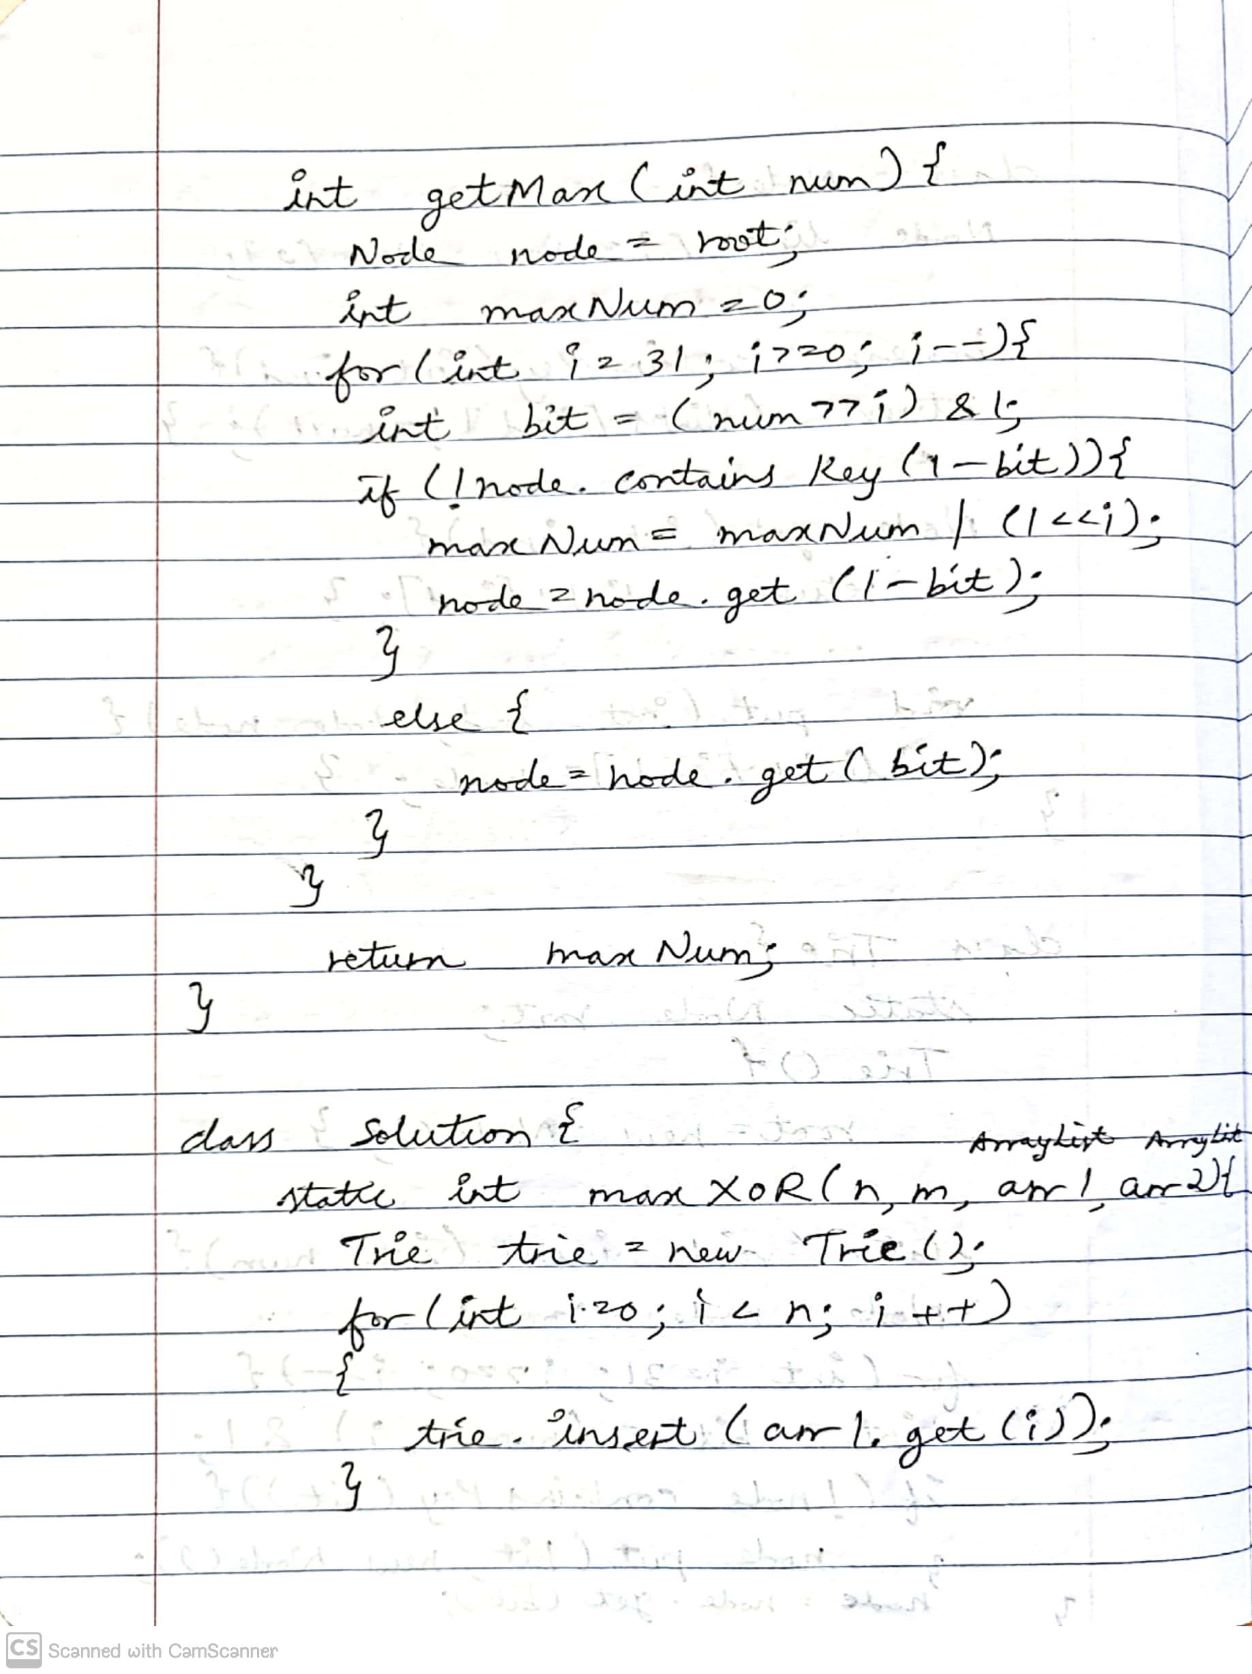 int getMax (int num) {
Node node = root;
int maxNum = 0;
for (int i = 31; i >= 0; i--) {
int bit = (num >> i) & 1;
if (!node. contains Key (1 - bit)) {
maxNum = maxNum | (1 << i);
node = node. get (1 - bit);
}
else {
node = node. get ( bit);
}
}
return maxNum;
}
class Solution {
ArrayList ArryLit
static int maxXOR (n, m, arr1, arr2) {
Trie trie = new Trie ();
for (int i = 0; i < n; i ++)
{
trie. insert (arr1. get (i));
}
CS Scanned with CamScanner